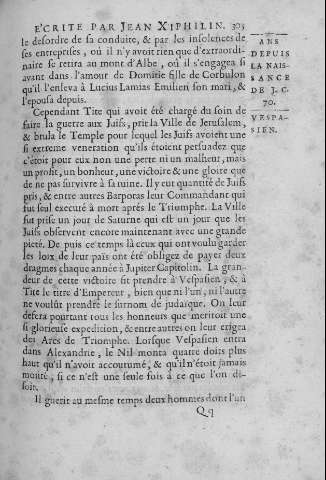 ECRITE PAR JEAN XIPHILIN. 305
le desordre de sa conduite, & par les insolences de
ses entreprises, où il n'y avoit rien que d'extraordi-
naire se retira au mont d'Albe, où il s'engagea si
avant dans l'amour de Domitie fille de Corbulon
qu'il l'enleva à Lucius Lamias Emilien son mari, &
l'épousa depuis.
Cependant Tite qui avoit été chargé du soin de
faire la guerre aux Juifs, prit la Ville de Jerusalem,
& brula le Temple pour lequel les Juifs avoient une
si extreme veneration qu'ils étoient persuadez que
c'étoit pour eux non une perte ni un malheur, mais
un profit, un bonheur, une victoire & une gloire que
de ne pas survivre à sa ruine. Il y eut quantité de Juifs
pris, & entre autres Barporas leur Commandant qui
fut seul executé à mort après le Triomphe. La Ville
fut prise un jour de Saturne qui est un jour que les
Juifs observent encore maintenant avec une grande
pieté. De puis ce temps là ceux qui ont voulu garder
les loix de leur païs ont été obligez de payer deux
dragmes chaque année à Jupiter Capitolin. La gran-
deur de cette victoire fit prendre à Vespasien, & à
Tite le titre d'Empereur, bien que ni l'un, ni l'autre
ne voulût prendre le surnom de judaïque. On leur
defera pourtant tous les honneurs que meritoit une
si glorieuse expedition, & entre autres on leur erigea
des Arcs de Triomphe. Lorsque Vespasien entra
dans Alexandrie, le Nil monta quatre doits plus
haut qu'il n'avoit accoutumé, & qu'il n'étoit jamais
monté, si ce n'est une seule fois à ce que l'on di-
soit.
Il guerit au mesme temps deux hommes dont l'un
Qq
ANS
DEPUIS
LA NAIS-
SANCE
DE J. C.
70.
VESPA-
SIEN.